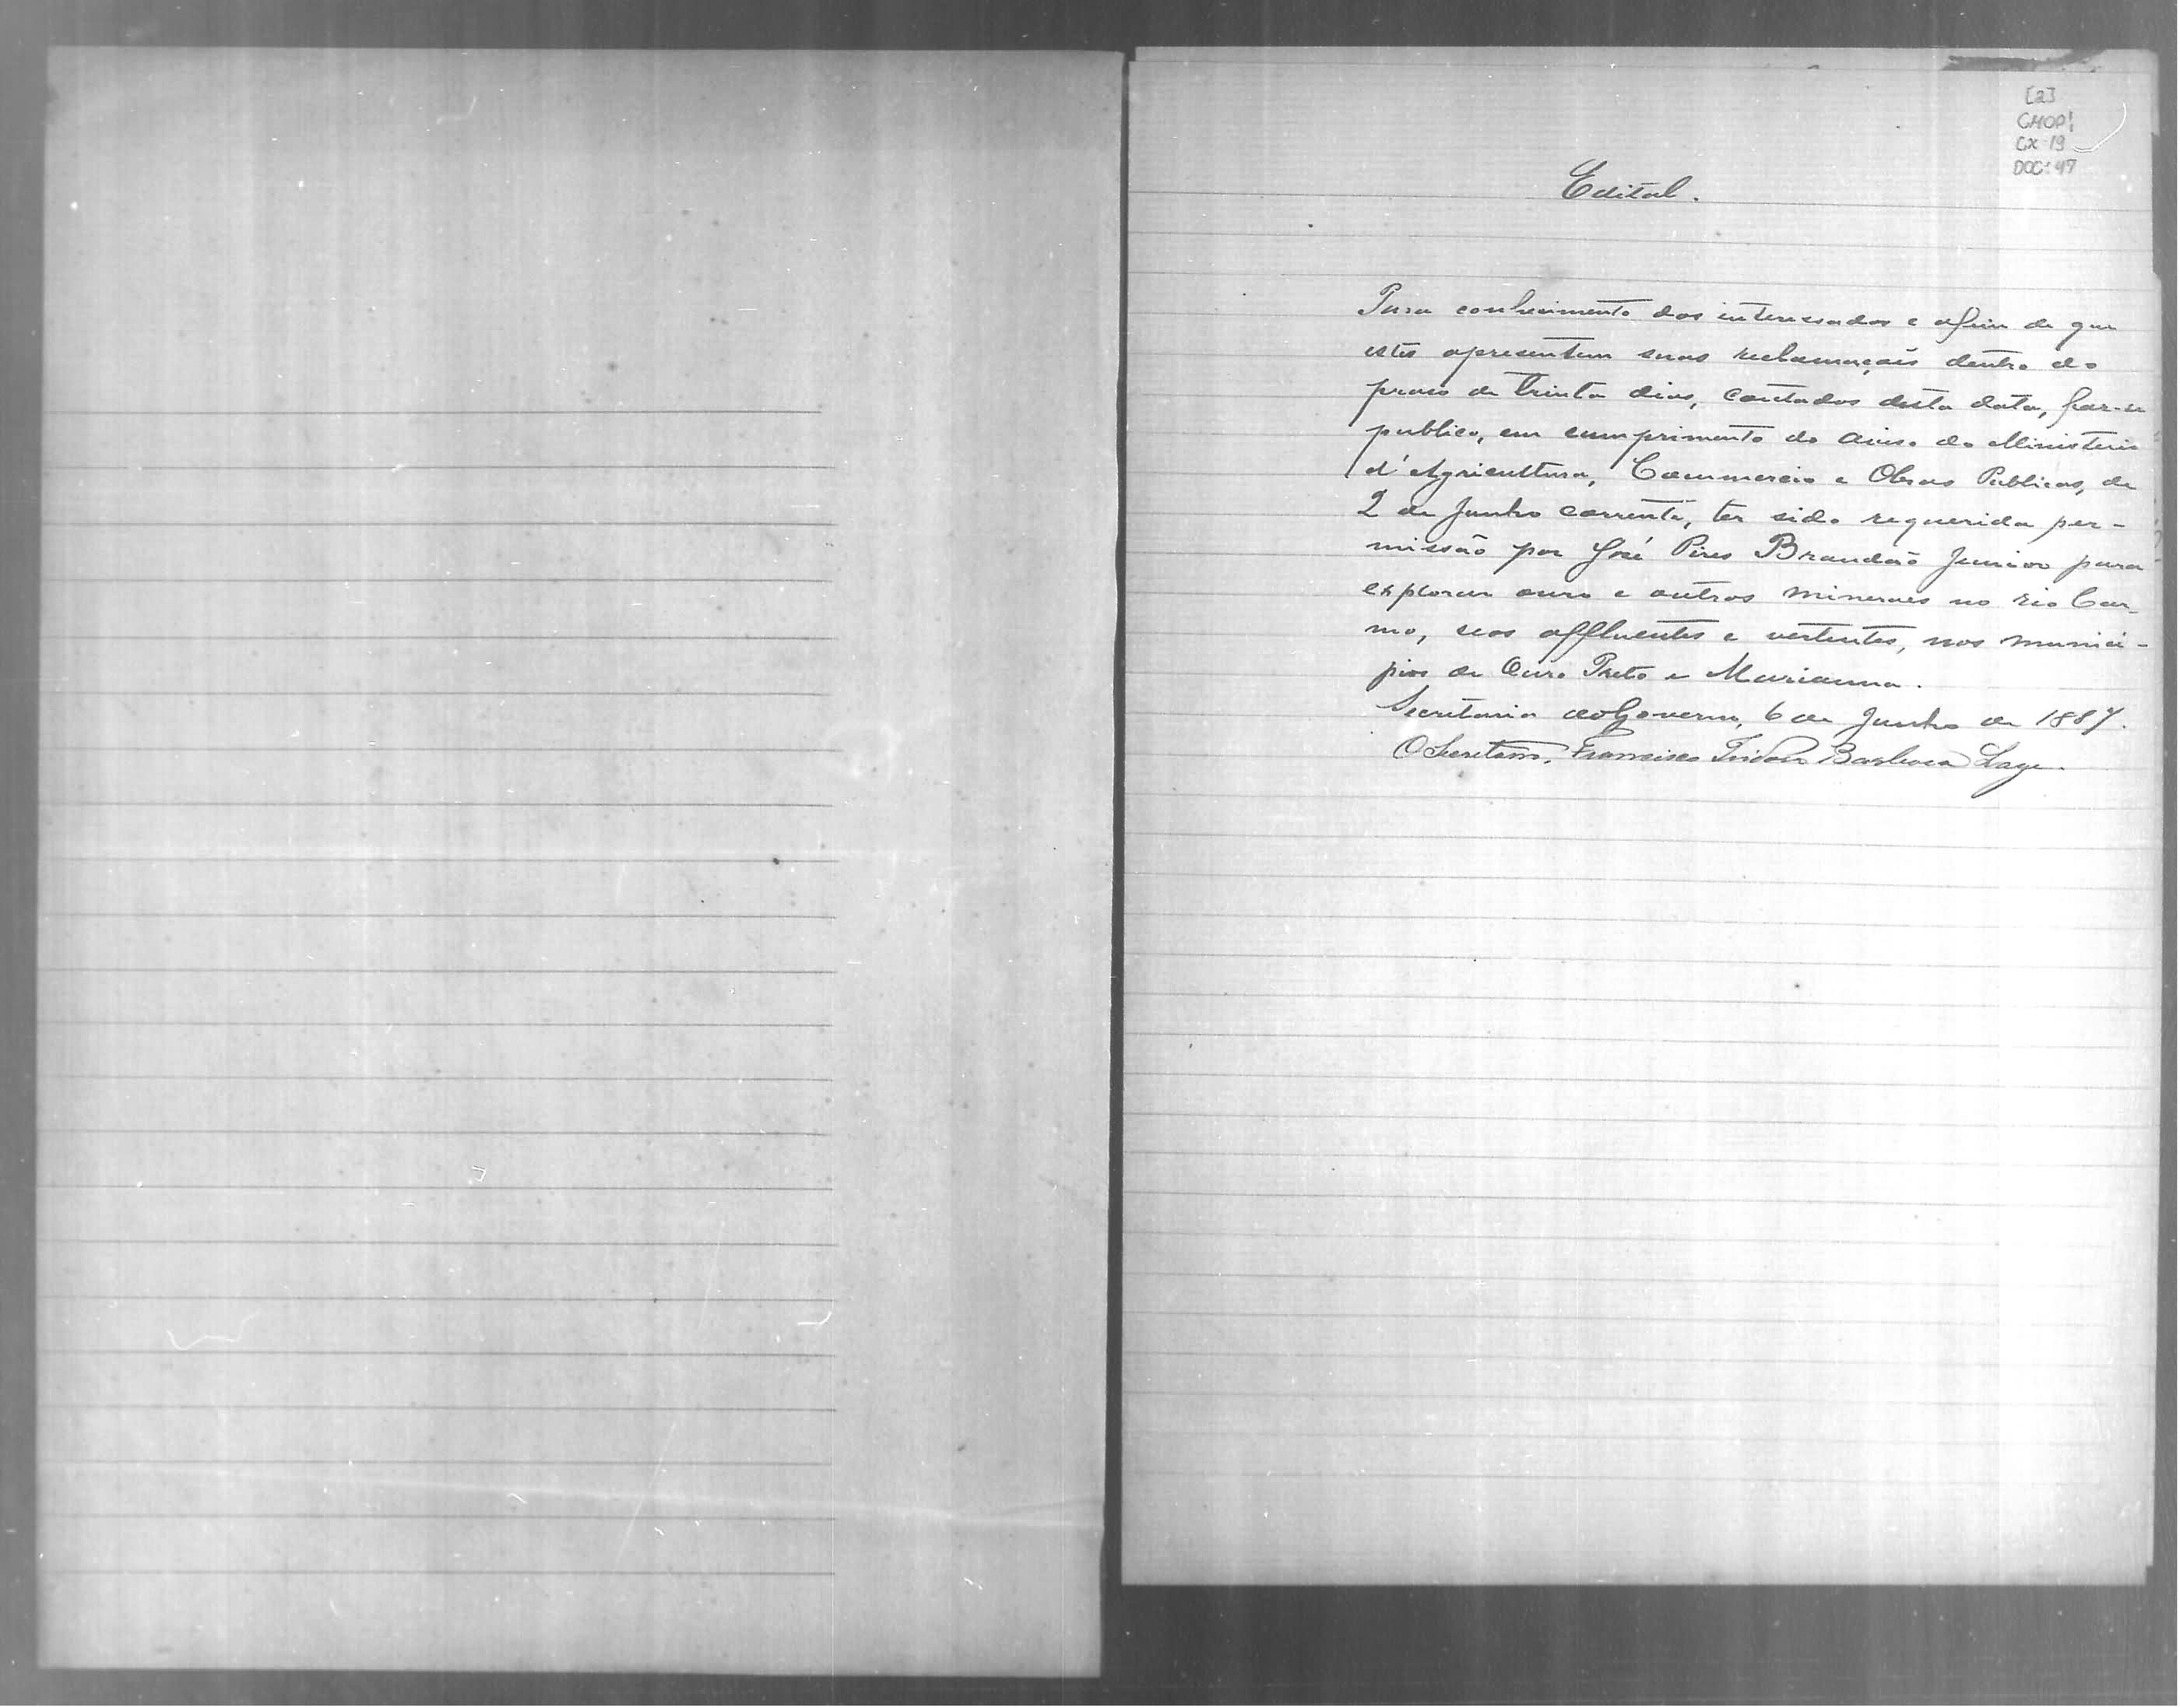 [2]
CMOP!
CX 19
DOC: 47
Edital.
Para conhecimento dos interessados e afim de que
estes apresentem suas reclamações dentro do
praso de trinta dias, contados desta data, faz-se
publico, em cumprimento do aviso do Ministerio
d'Agricultura, Commercio e Obras Publicas, de
2 de Junho corrente, ter sido requerida per-
missão por José Pires Brandão Junior para
explorar ouro e outros mineraes no rio Car-
mo, seos affluentes e vertentes, nos munici-
pios de Ouro Preto e Marianna.
Secretaria do Governo, 6 de Junho de 1887.
O Secretario, Francisco Barbosa Lage.